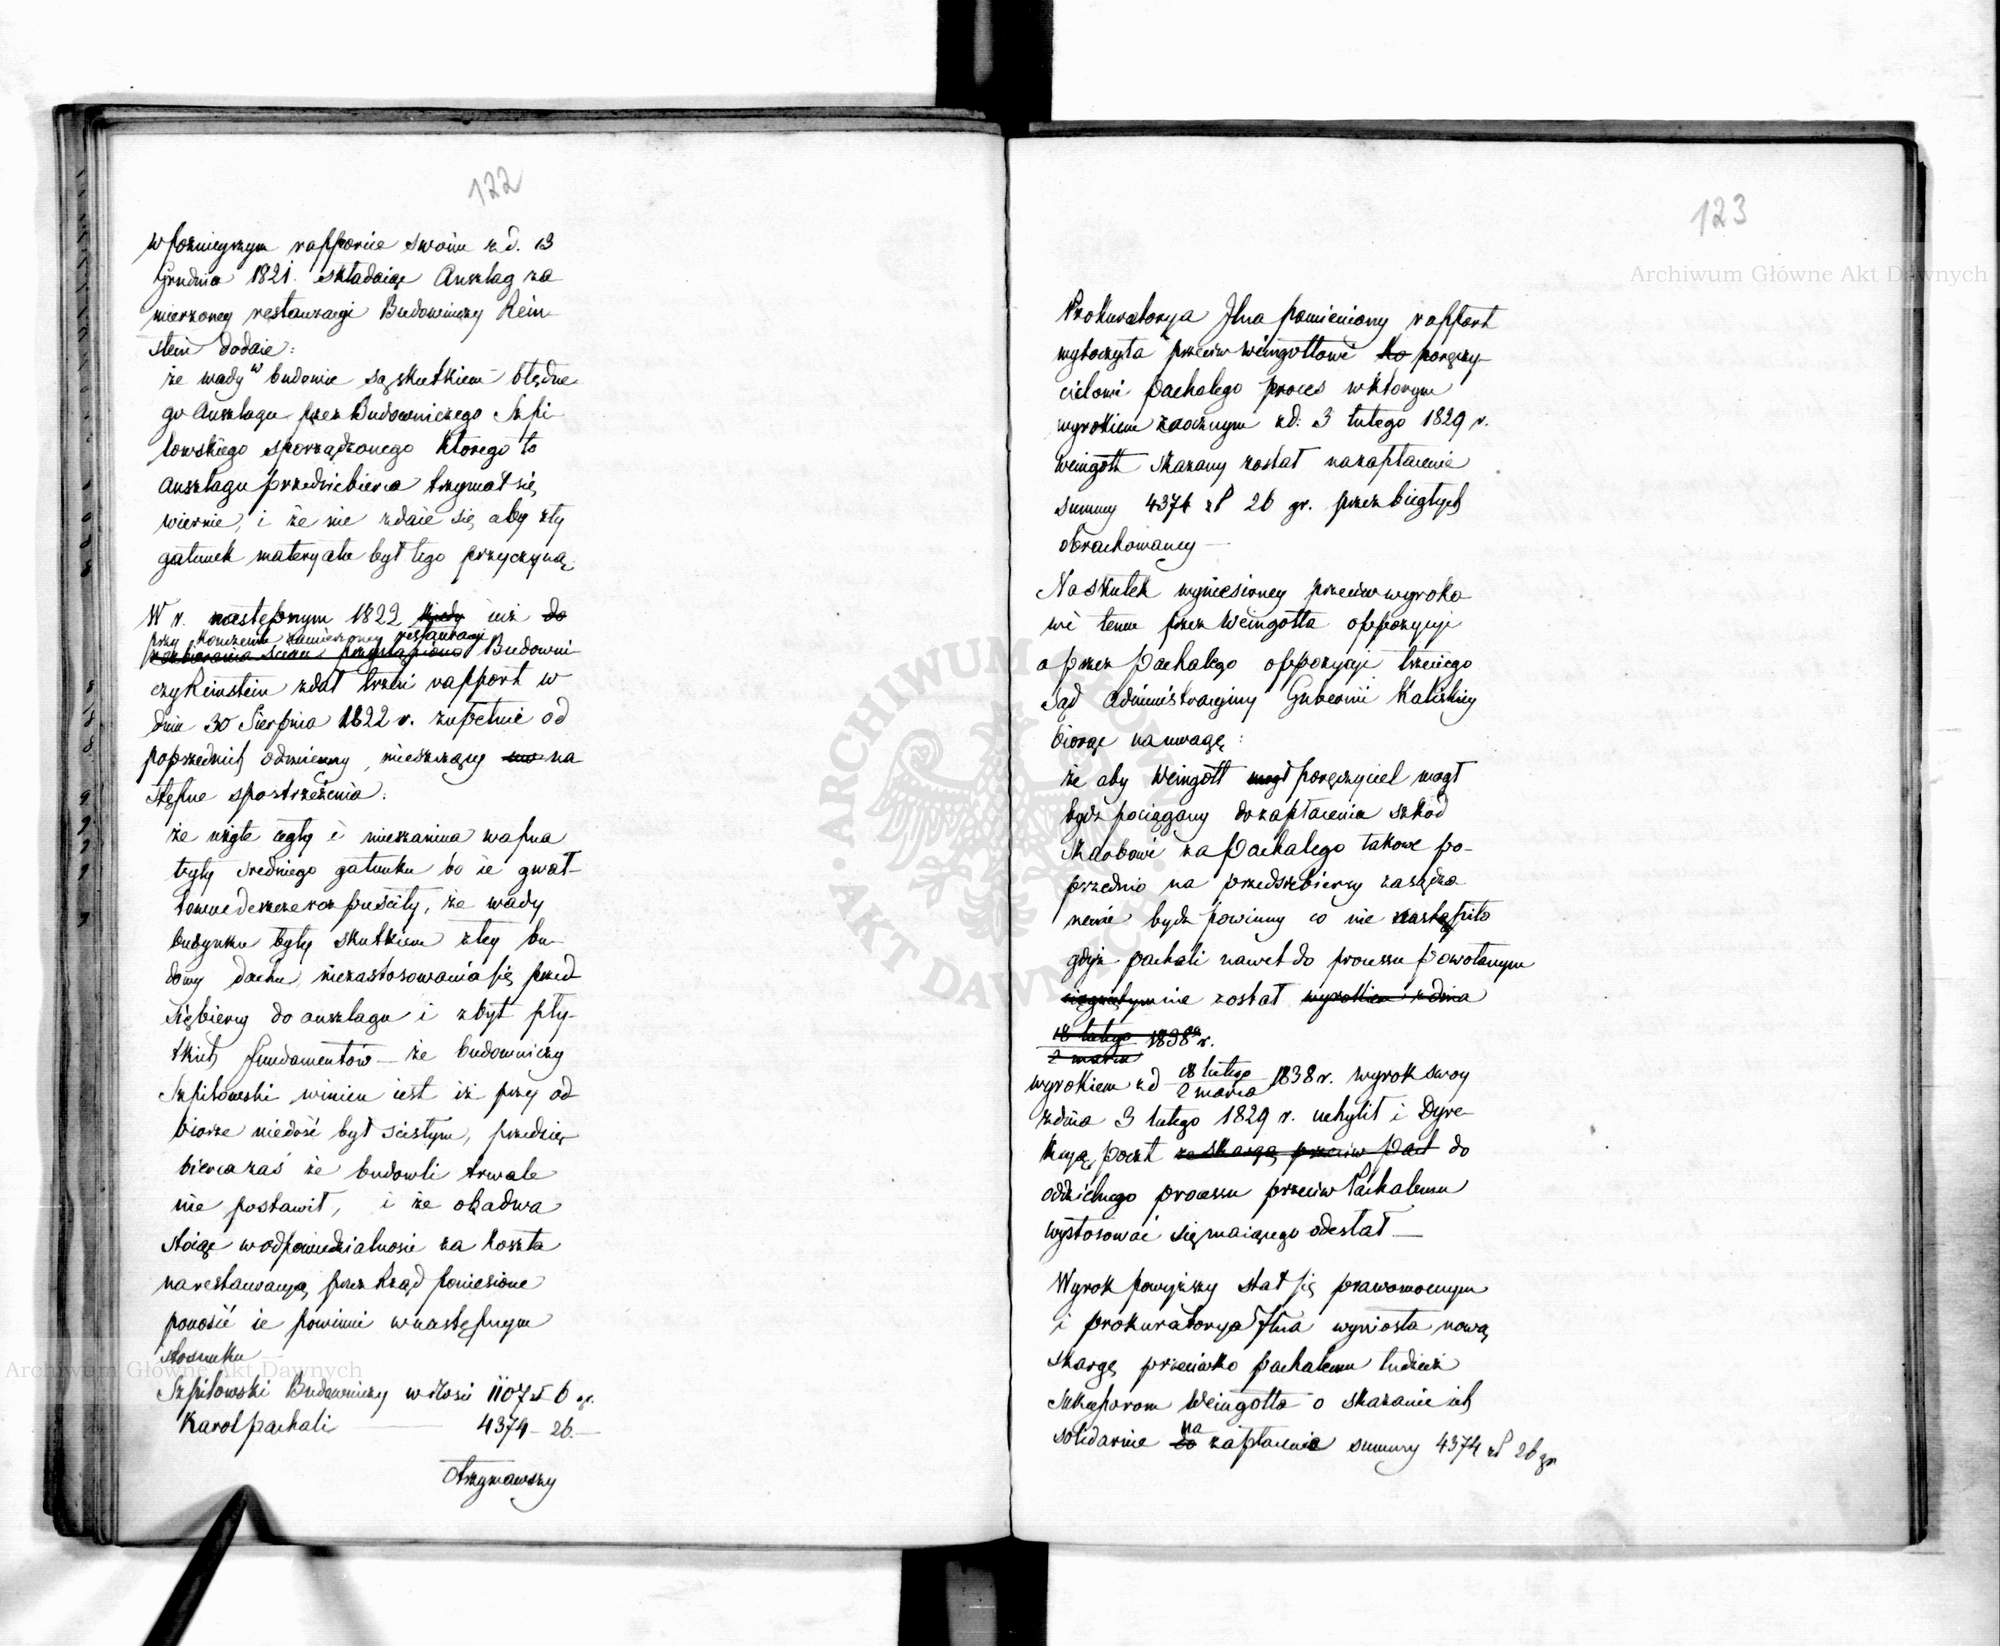 122
w poznieyszym rapporcie swoim z d. 13
Grudnia 1821. składaiąc Anszlag za
mierzoney restauracyi Budowniczy Rein
stein dodaie:
że wady w budowie są skutkiem błędne
go Anszlagu przez Budowniczego Szpi
lowskiego sporządzonego którego to
anszlagu przedsiebierca trzymał się
wiernie, i że nie zdaie się aby zły
gatunek materyału był tego przyczyną.
W r. następnym 1822 kiedy iuż do
przy kończeniu zamierzoney restauracyi
rozbierania ścian przystąpiono Budowni
czy Reinstein zdał trzeci rapport w
dniu 30 Sierpnia 1822 r. zupełnie od
poprzednich odmienny, mieszczący na
stępne spostrzeżenia:
że użyte cegły i mieszanina wapna
były średniego gatunku bo ie gwał-
towne deszcze rozpuściły, że wady
budynku były skutkiem złey bu-
dowy dachu, niezastosowania się przed
siębiercy do anszlagu i zbyt pły-
tkich fundamentów — że budowniczy
Szpilowski winien iest iż przy od
biorze niedość był scisłym, przedsię-
bierca zaś że budowli trwale
nie postawił, i że obadwa
stoiąc w odpowiedzialnosci za koszta
na restauracyą przez Rząd poniesione
ponosić ie powinni w następnym
stosunku
Szpilowski Budowniczy w ilosci 1107 zł 6 gr.
Karol Pachali — 4374 — 26. —
Otrzymawszy
123
Archiwum Główne Akt Dawnych
Prokuratorya Jlna pomieniony rapport
wytoczyła przeciw Weingottowi ko poręczy-
cielowi Pachalego proces w którym
wyrokiem zaocznym z d. 3 lutego 1829 r.
Weingott skazany został na zapłacenie
summy 4374 zł 26 gr. przez biegłych
obrachowaney —
Na skutek wyniesioney przeciw wyroko
wi temu przez Weingotta oppozycyi
a przez Pachalego oppozycyi trzeciego
Sąd Administracyiny Gubernii Kaliskiey
biorąc na uwagę:
że aby Weingott mogł poręczyciel mogł
bydź pociągany do zapłacenia szkód
Skarbowi za Pachalego takowe po-
przednio na przedsiebiercy zasądzo
nemi bydź powinny co nie nastąpiło
gdyż Pachali nawet do processu powołanym
nie został wyrokiem z dnia
18 lutego
2 marca 1838 r.
wyrokiem z d 18 lutego
2 marca 1838 r. wyrok swoy
z dnia 3 lutego 1829 r. uchylił i Dyre-
kcyą poczt ze skargą przeciw Pach do
oddzielnego processu przeciw Pachalemu
wystosować się maiącego odesłał —
Wyrok powyższy stał się prawomocnym
i prokuratorya Jlna wyniosła nową
skargę przeciwko Pachalemu tudzież
Sukcessorom Weingotta o skazanie ich
solidarnie do na zapłacenie summy 4374 zł 26 gr
Archiwum Główne Akt Dawnych
ARCHIWUM GŁÓWNE AKT DAWNYCH